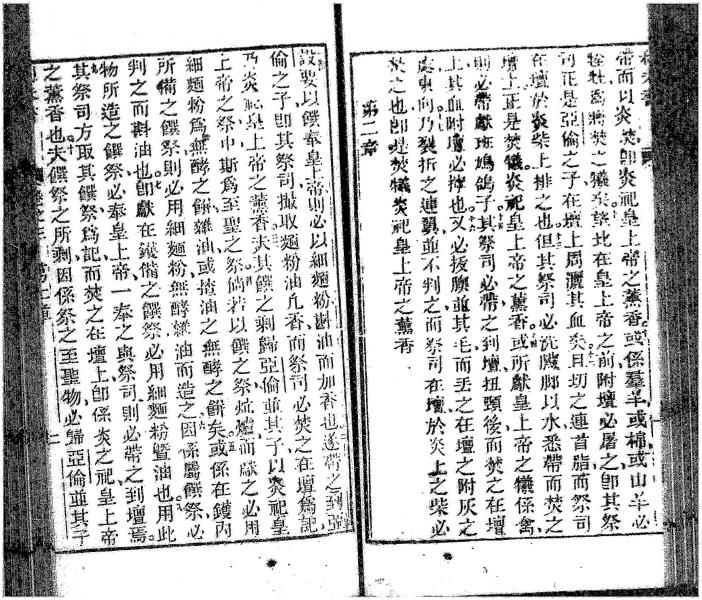 帶而以炎焚卽炎祀皇上帝之薰香或係羣羊或棉或山羊必
牲牡爲將焚之犧在皇上帝之前附壇必屠之卽其祭
司正是亞倫之子在壇上周灑其血矣且切之連首脂而祭司
在壇於炎柴上排之也但其祭司必洗臟脚以水悉帶而焚之
壇上正是焚犧炎祀皇上帝之薰香或所獻皇上帝之犧係禽
則必帶獻班鳩鴿子其祭司必帶之到壇扭頭後而焚之在壇
上其血附壇必搾也又必拔膆並其毛而丟之在壇之附灰之
處東向乃裂折之連翼並不判之而祭司在壇於炎上之柴必
焚之也卽是焚犧炎祀皇上帝之薰香
第二章
設要以饌奉皇上帝則必以細麵粉斟油而加香也遂帶之到亞
倫之子卽其祭司撮取麵粉油凡香而祭司必焚之在壇爲記
乃炎祀皇上帝之薰香夫其饌之剩歸亞倫並其子以炎祀皇
上帝之祭中斯爲至聖之祭倘若以饌之祭炕爐而獻之必用
細麵粉爲無酵之餅雜油或搽油之無酵之餅矣或係在鑊內
所備之饌祭則必用細麵粉無酵雜油而造之因係屬饌祭必
判之而斟油也卽獻在鑊備之饌祭必用細麵粉暨油也用此
物所造之饌祭必奉皇上帝一奉之與祭司則必帶之到壇焉
其祭司方取其饌祭爲記而焚之在壇上卽係炎之祀皇上帝
之薰香也夫饌祭之所剩因係祭之至聖物必歸亞倫並其子